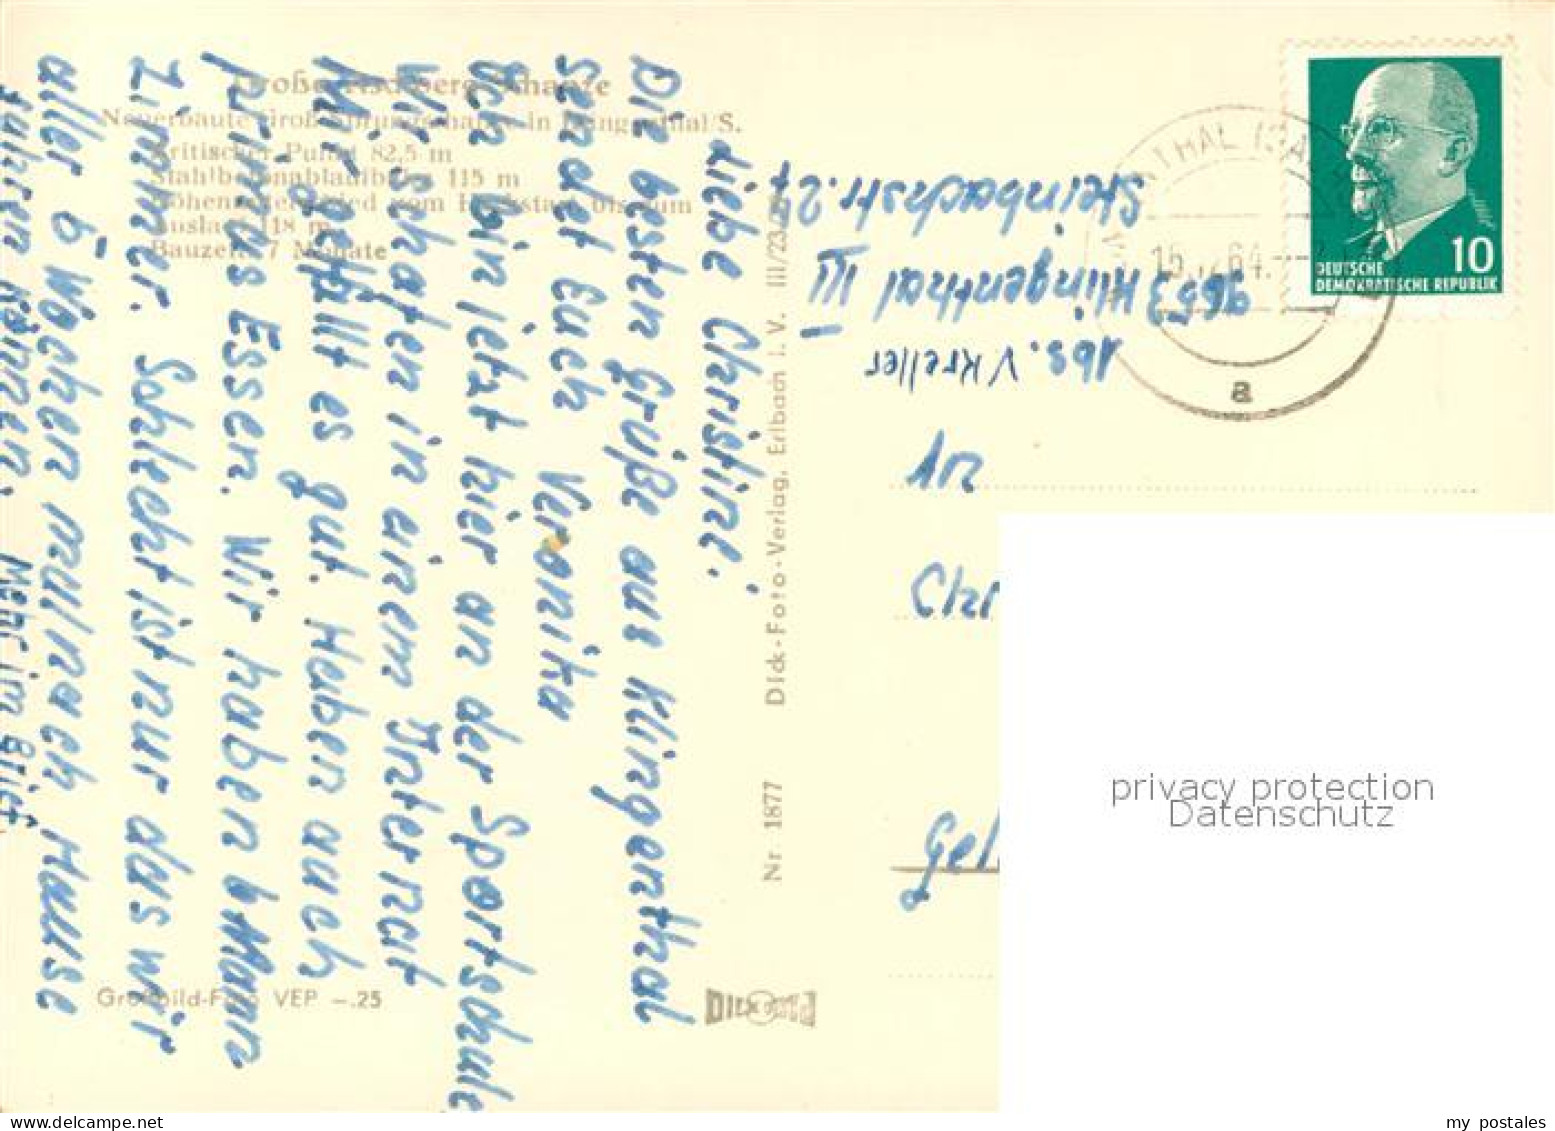 Große Aschberg-Schanze
Neuerbaute Großsprungschanze in Klingenthal/S.
Kritischer Punkt 82,5 m
Stahlbetonablaufbahn 115 m
Höhenunterschied vom Hochstart bis zum
Auslauf 118 m
Bauzeit: 7 Monate
Liebe Christine.
Die besten Grüße aus Klingenthal
sendet Euch Veronika
Ich bin jetzt hier an der Sportschule
Wir schafen in einem Internat
Mir gefällt es gut. Haben auch
prima Essen. Wir haben 6 Mann
Zimmer. Schlecht ist nur das wir
aller 6 Wochen mal nach Hause
fahren können. Mehr im Brief.
Großbild-Foto VEP -.25
Nr. 1877 Dick-Foto-Verlag, Erlbach i. V. III/23/
DICK Bild
Abs. V Kreller
9653 Klingenthal III
Steinbachstr. 27
THAL
15. 64.
a
DEUTSCHE
DEMOKRATISCHE REPUBLIK
10
An
privacy protection
Datenschutz
my postales